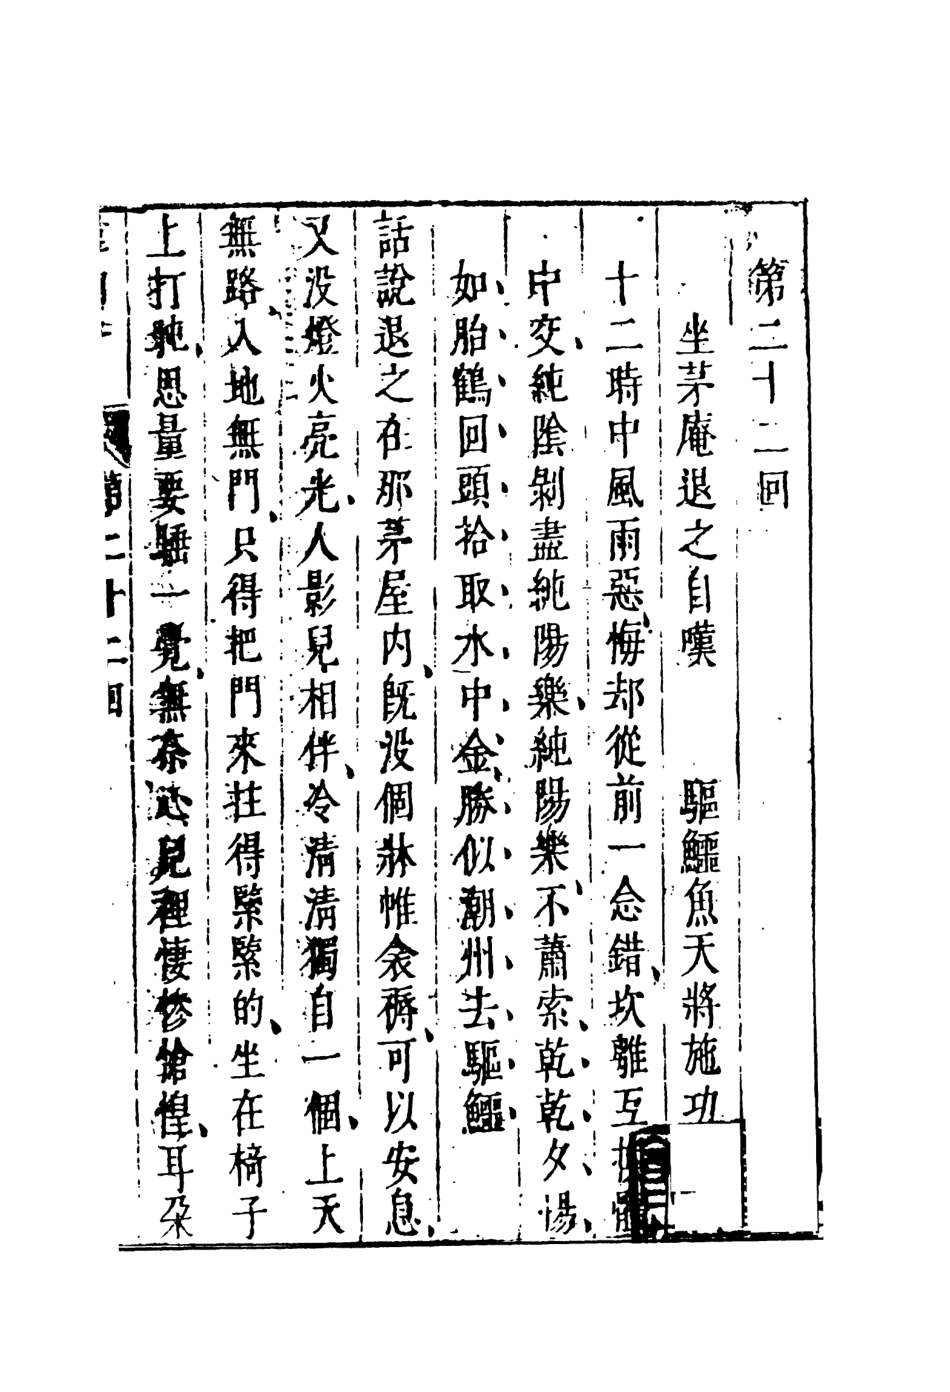 第二十二回
坐茅庵退之自嘆　驅鱷魚天將施功
十二時中風雨惡、悔却從前一念錯、坎離互
中交、純陰剝盡純陽樂、純陽樂、不蕭索、乾乾、夕惕、
如、胎、鶴、回、頭、拾、取、水、中、金、勝、似、潮、州、去、驅、鱷、
話說退之在那茅屋内、旣没個牀帷衾褥、可以安息、
又没燈火亮光、人影兒相伴、冷清清獨自一個、上天
無路、入地無門、只得把門來拄得緊緊的、坐在椅子
上打盹、思量要睡一覺、無奈心兒裡悽慘愴惶、耳朶
第二十二回